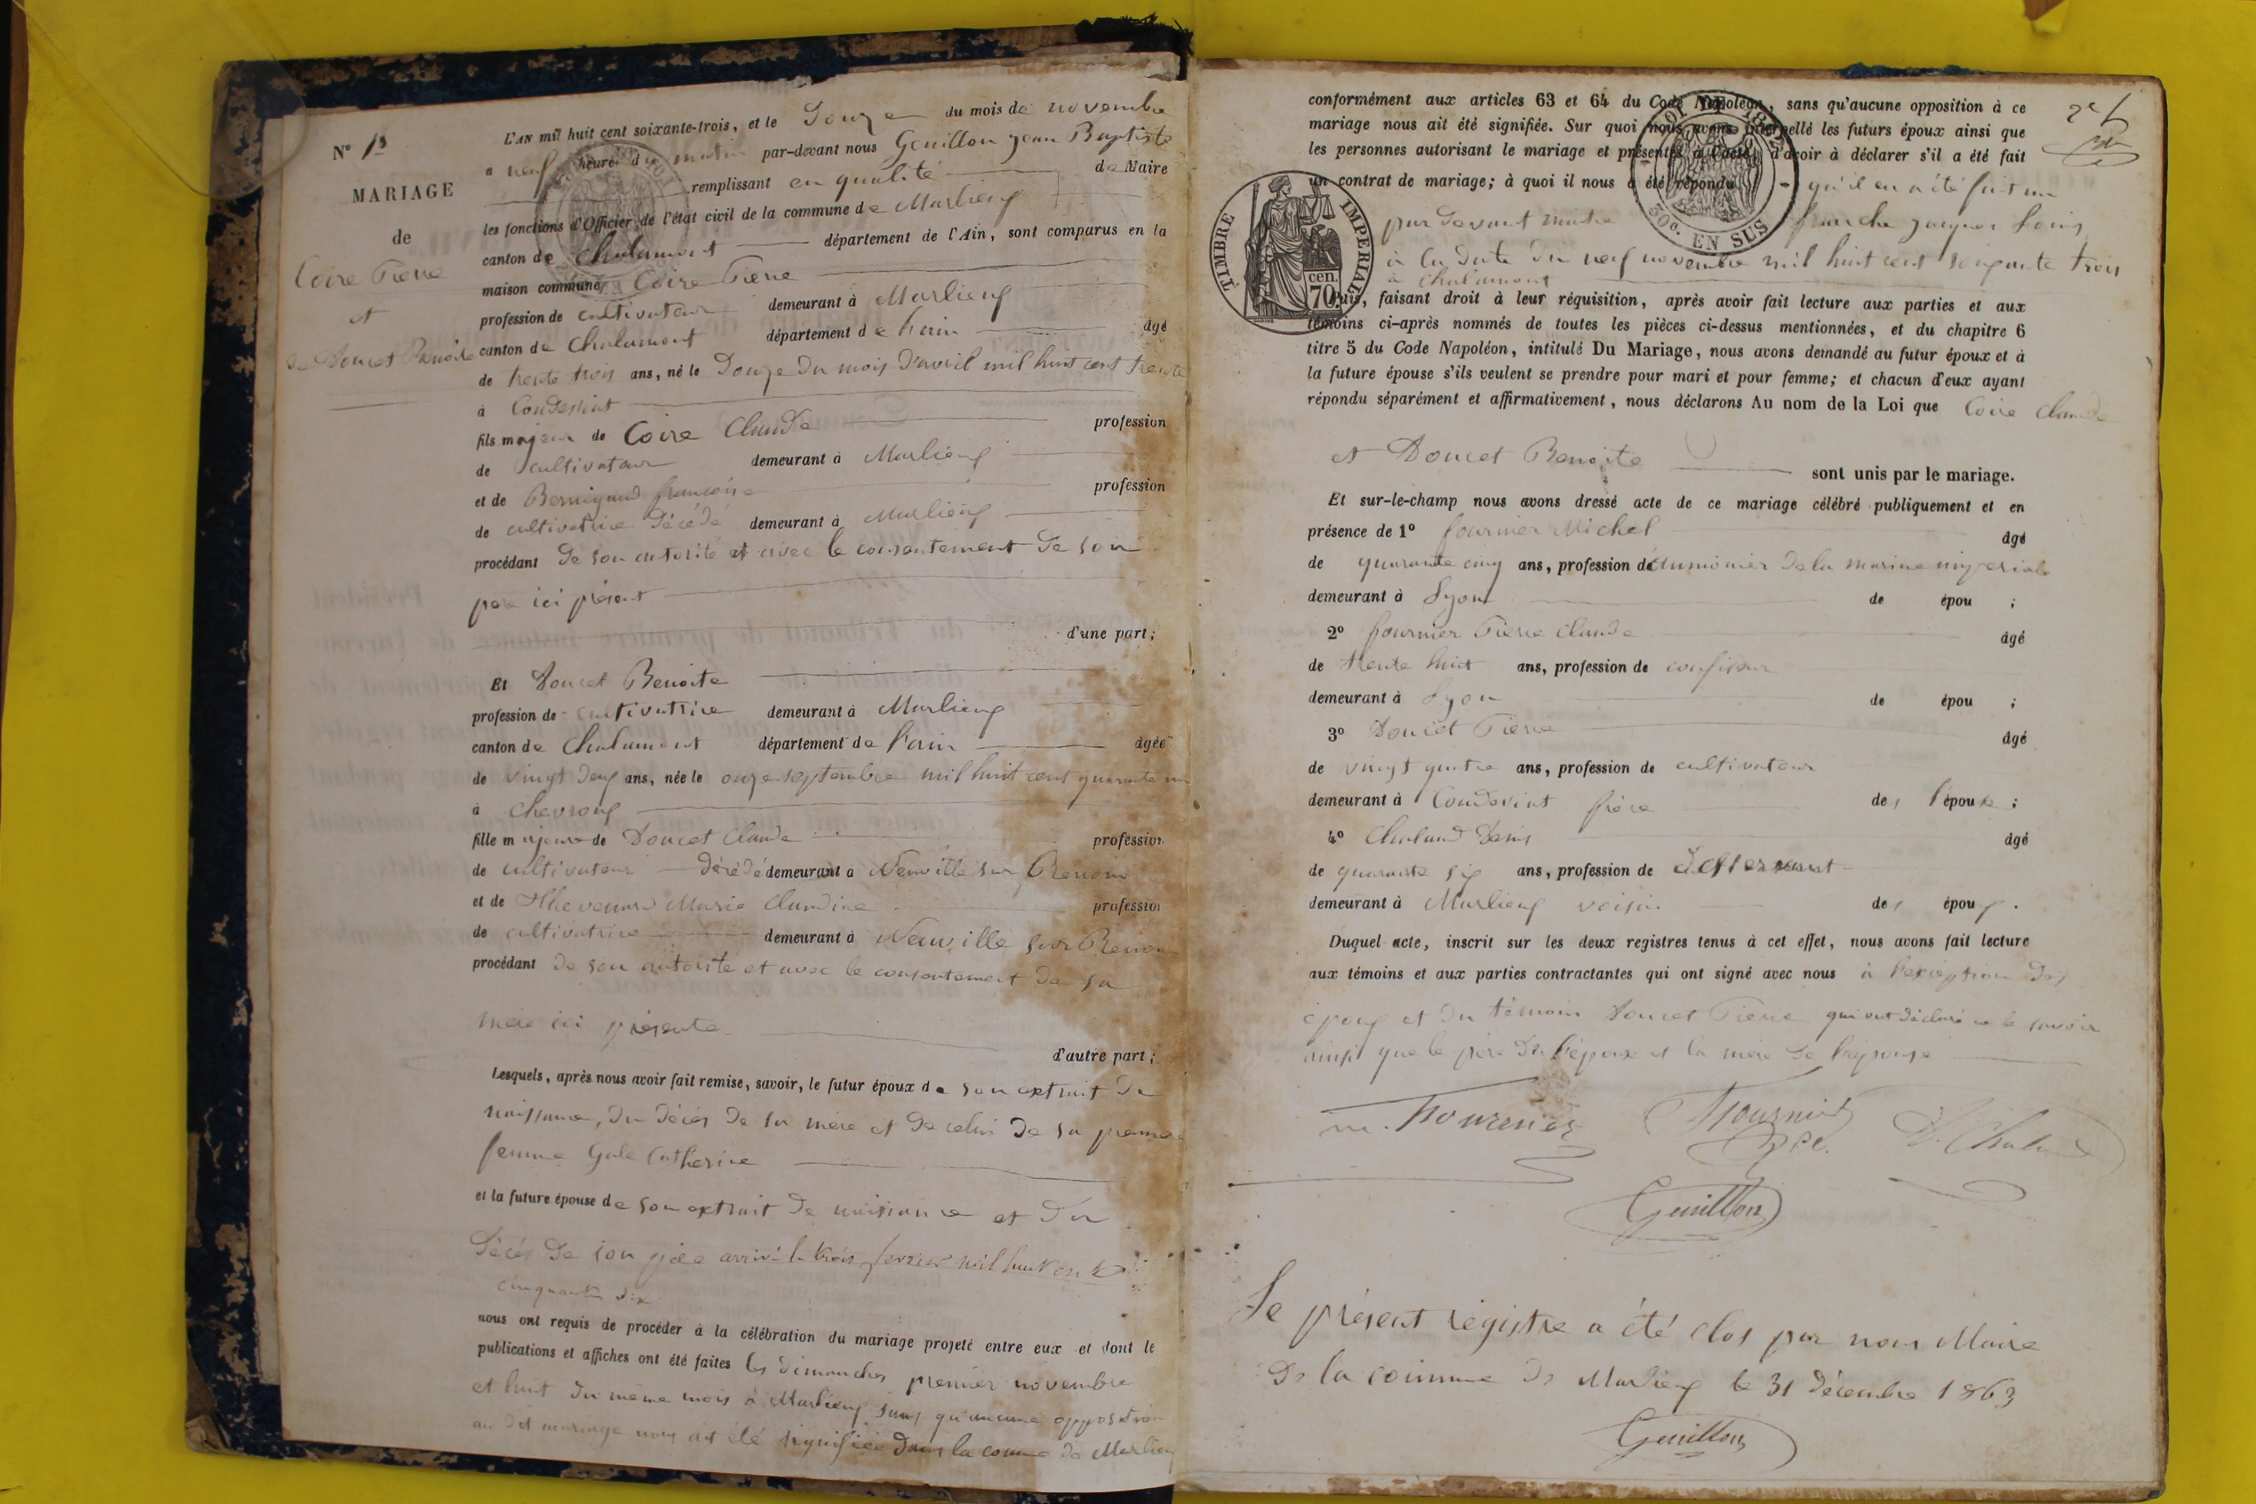 N° 1
MARIAGE
de
Coire Pierre
et
de Doucet Benoite
L'AN mil huit cent soixante-trois, et le Douze du mois de novembre
à neuf heures du matin par-devant nous Genillon Jean Baptiste
remplissant en qualité de Maire
les fonctions d'Officier de l'état civil de la commune de Marlieux
canton de Chalamont département de l'Ain, sont comparus en la
maison commune Coire Pierre
profession de cultivateur demeurant à Marlieux
canton de Chalamont département de l'ain âgé
de trente trois ans, né le Douze du mois d'avril mil huit cent trente
à Condessiat
fils majeur de Coire Claude profession
de cultivateur demeurant à Marlieux
et de françoise profession
de cultivatrice décédé demeurant à Marlieux
procédant de son autorité et avec le consentement de son
père ici présent
d'une part;
Et Doucet Benoite
profession de cultivatrice demeurant à Marlieux
canton de Chalamont département de l'ain âgée
de vingt deux ans, née le onze septembre mil huit cent quarante un
à chevroux
fille majeure de Doucet Claude profession
de cultivateur décédé demeurant à Neuville sur Renom
et de Thevenard Marie Claudine profession
de cultivatrice demeurant à Neuville sur Renom
procédant de son autorité et avec le consentement de sa
mère ici présente
d'autre part;
Lesquels, après nous avoir fait remise, savoir, le futur époux de son extrait de
naissance, du décès de sa mère et de celui de sa première
femme Gale Catherine
et la future épouse de son extrait de naissance et du
décès de son père arrivé le trois février mil huit cent
cinquante dix
nous ont requis de procéder à la célébration du mariage projeté entre eux et dont le
publications et affiches ont été faites les dimanches premier novembre
et huit du même mois à Marlieux sans qu'aucune opposition
au dit mariage nous ait été signifiée dans la comme de Marlieux
conformément aux articles 63 et 64 du Code Napoléon, sans qu'aucune opposition à ce
mariage nous ait été signifiée. Sur quoi nous avons interpellé les futurs époux ainsi que
les personnes autorisant le mariage et présentes à l'acte, d'avoir à déclarer s'il a été fait
un contrat de mariage; à quoi il nous a été répondu qu'il en a été fait un
par devant maitre franche jacques Louis
à la date du neuf novembre mil huit cent soixante trois
à Chalamont
Puis, faisant droit à leur réquisition, après avoir fait lecture aux parties et aux
témoins ci-après nommés de toutes les pièces ci-dessus mentionnées, et du chapitre 6
titre 5 du Code Napoléon, intitulé Du Mariage, nous avons demandé au futur époux et à
la future épouse s'ils veulent se prendre pour mari et pour femme; et chacun d'eux ayant
répondu séparément et affirmativement, nous déclarons Au nom de la Loi que Coire Claude
et Doucet Benoite sont unis par le mariage.
Et sur-le-champ nous avons dressé acte de ce mariage célébré publiquement et en
présence de 1° fournier Michel âgé
de quarante cinq ans, profession d'aumonier de la marine imperiale
demeurant à Lyon de épou ;
2° fournier Pierre Claude âgé
de trente huit ans, profession de confiseur
demeurant à Lyon de épou ;
3° Doucet Pierre âgé
de vingt quatre ans, profession de cultivateur
demeurant à Condessiat frère de l'épouse ;
4° Chaland Denis âgé
de quarante six ans, profession de
demeurant à Marlieux voisin des époux.
Duquel acte, inscrit sur les deux registres tenus à cet effet, nous avons fait lecture
aux témoins et aux parties contractantes qui ont signé avec nous à l'exception des
époux et du témoin Doucet Pierre qui ont déclaré ne le savoir
ainsi que le père de l'époux et la mère de l'épouse
m. Fournier Fournier D. Chaland
Genillon
Le présent registre a été clos par nous Maire
de la commune de Marlieux le 31 décembre 1863
Genillon
TIMBRE IMPERIAL
70 cen.
LOI DE 1862
50c. EN SUS